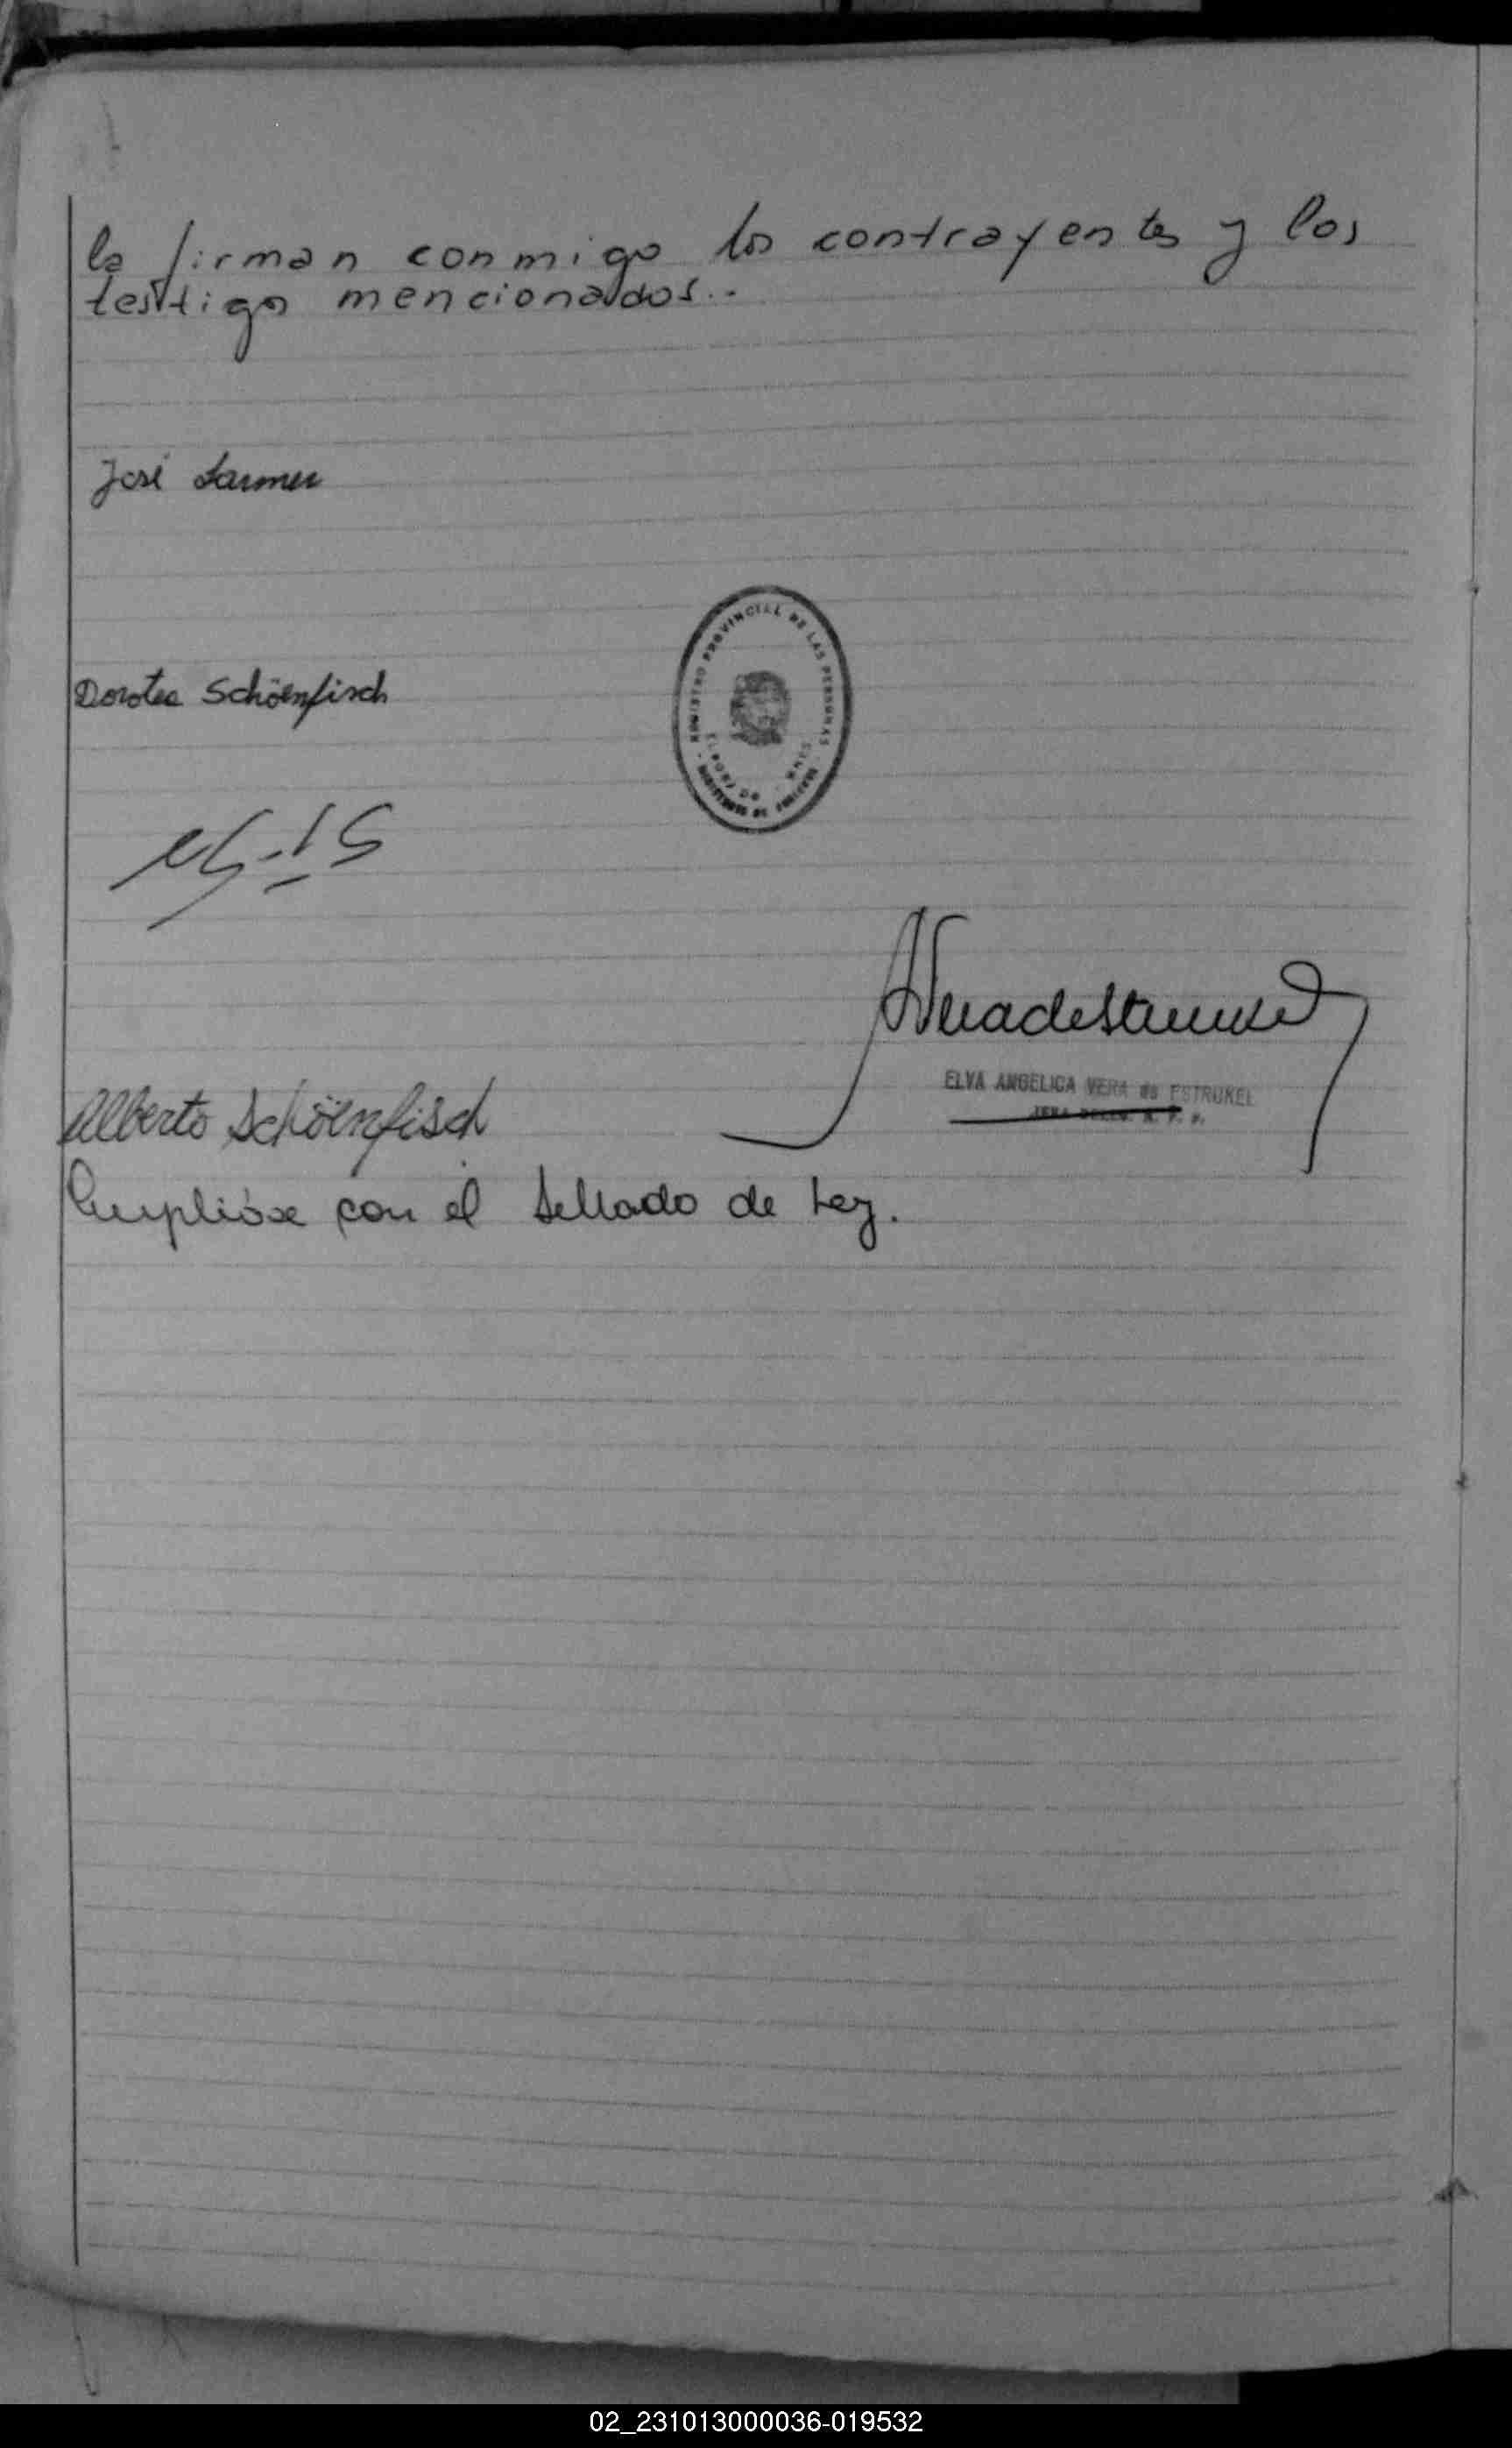 la firman conmigo los contrayentes y los
testigos mencionados..
José
Dorotea Schöenfisch
REGISTRO PROVINCIAL DE LAS PERSONAS
ELVA ANGELICA VERA de ESTRUKEL
Alberto Schöenfisch
Cumplióse con el Sellado de Ley.
02_231013000036-019532